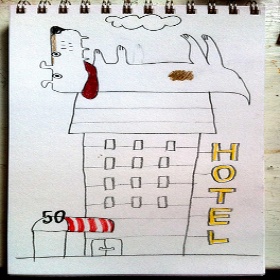 HOTEL
50